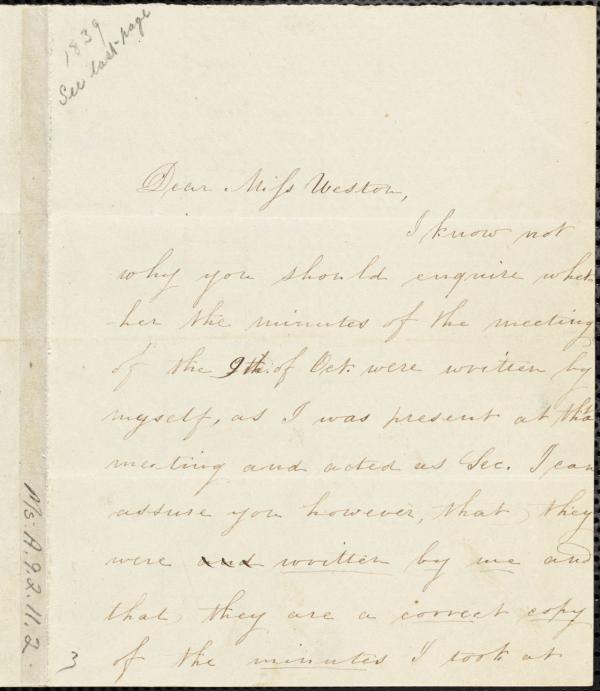 1839
See last page
Dear Miss Weston,
I know not
why you should enquire whet
her the minutes of the meeting
of the 9th. of Oct. were written by
myself, as I was present at that
meeting and acted as Sec. I can
assure you however, that they
were and written by me and
that they are a correct copy
of the minutes I took at
3
Ms. A. 9.2. 11. 2